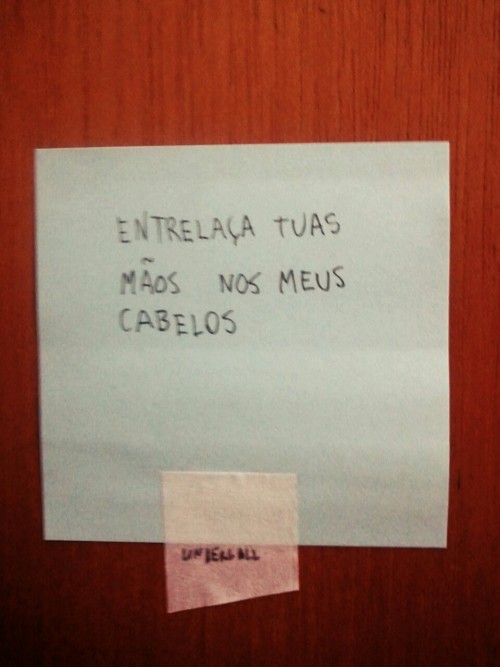 ENTRELAÇA TUAS
MÃOS NOS MEUS
CABELOS